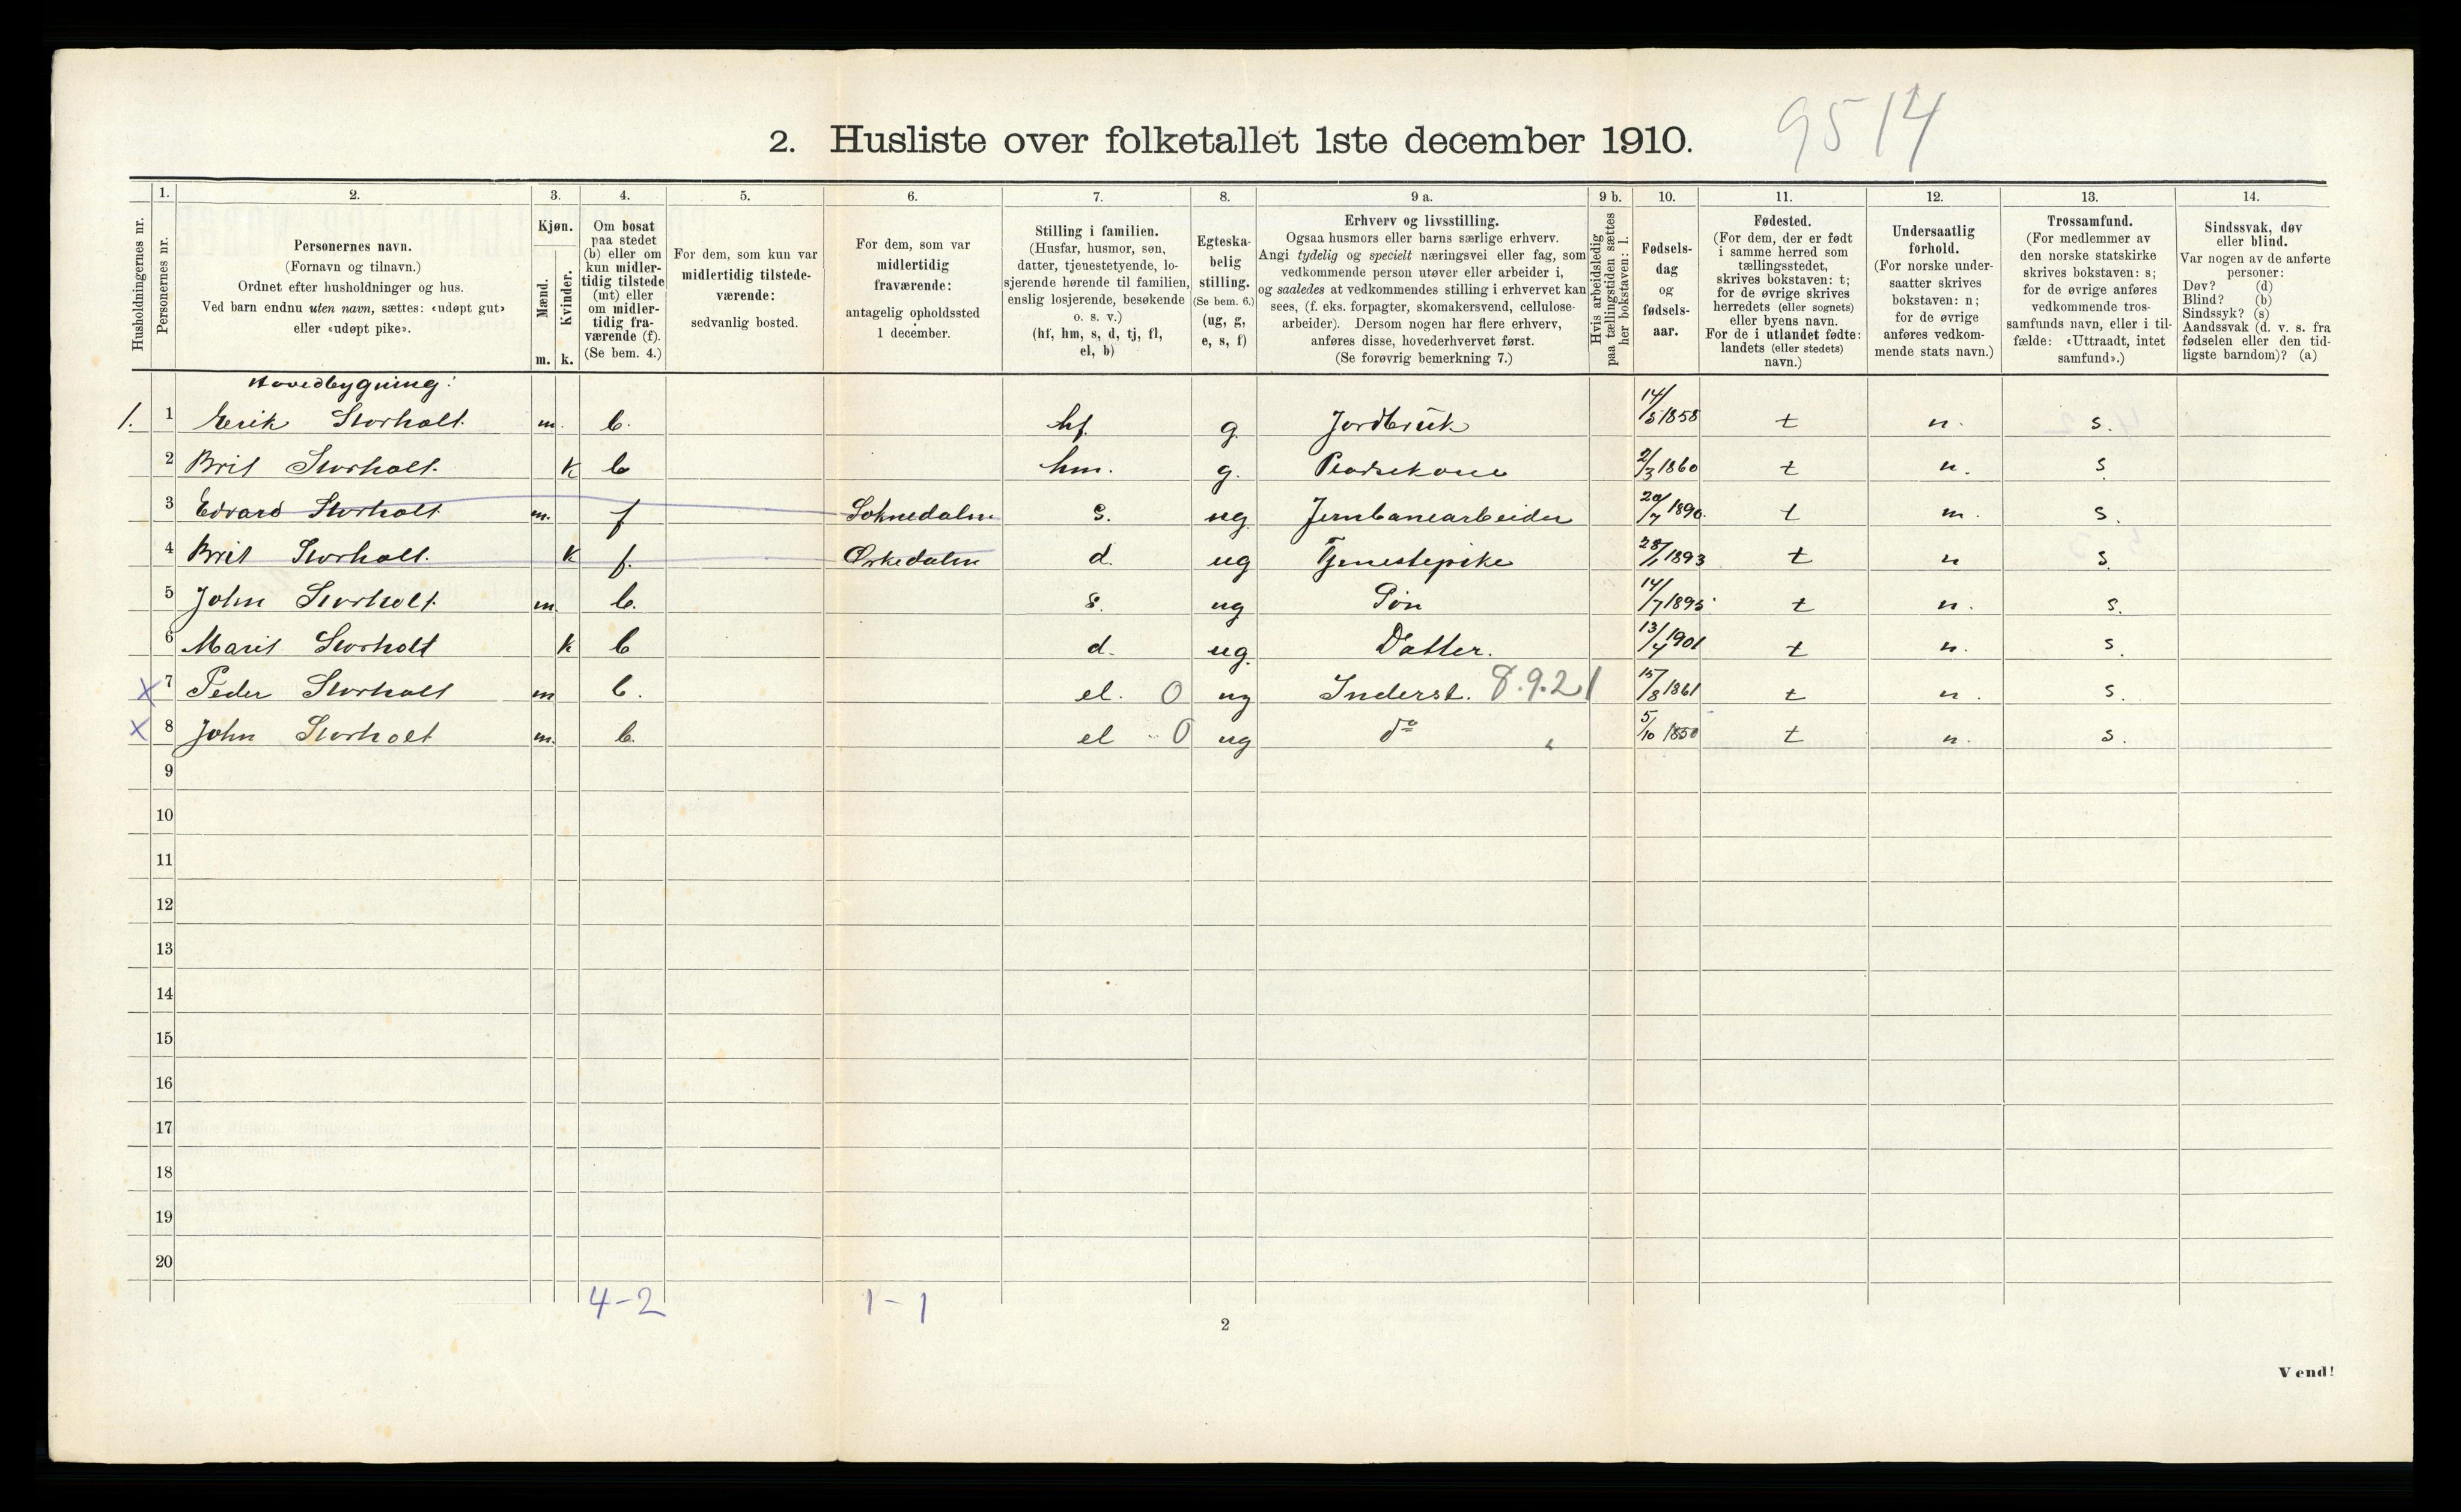 2. Husliste over folketallet 1ste december 1910.
9514
Husholdningernes nr.
1.
Personernes nr.
2.
Personernes navn.
(Fornavn og tilnavn.)
Ordnet efter husholdninger og hus.
Ved barn endnu uten navn, sættes: «udøpt gut»
eller «udøpt pike».
3.
Kjøn.
Mænd.
Kvinder.
m. k.
4.
Om bosat
paa stedet
(b) eller om
kun midler-
tidig tilstede
(mt) eller
om midler-
tidig fra-
værende (f).
(Se bem. 4.)
5.
For dem, som kun var
midlertidig tilstede-
værende:
sedvanlig bosted.
6.
For dem, som var
midlertidig
fraværende:
antagelig opholdssted
1 december.
7.
Stilling i familien.
(Husfar, husmor, søn,
datter, tjenestetyende, lo-
sjerende hørende til familien,
enslig losjerende, besøkende
o. s. v.)
(hf, hm, s, d, tj, fl,
el, b)
8.
Egteska-
belig
stilling.
(Se bem. 6.)
(ug, g,
e, s, f)
9 a.
Erhverv og livsstilling.
Ogsaa husmors eller barns særlige erhverv.
Angi tydelig og specielt næringsvei eller fag, som
vedkommende person utøver eller arbeider i,
og saaledes at vedkommendes stilling i erhvervet kan
sees, (f. eks. forpagter, skomakersvend, cellulose-
arbeider). Dersom nogen har flere erhverv,
anføres disse, hovederhvervet først.
(Se forøvrig bemerkning 7.)
9 b.
Hvis arbeidsledig
paa tællingstiden sættes
her bokstaven: l.
10.
Fødsels-
dag
og
fødsels-
aar.
11.
Fødested.
(For dem, der er født
i samme herred som
tællingsstedet,
skrives bokstaven: t;
for de øvrige skrives
herredets (eller sognets)
eller byens navn.
For de i utlandet fødte:
landets (eller stedets)
navn.)
12.
Undersaatlig
forhold.
(For norske under-
saatter skrives
bokstaven: n;
for de øvrige
anføres vedkom-
mende stats navn.)
13.
Trossamfund.
(For medlemmer av
den norske statskirke
skrives bokstaven: s;
for de øvrige anføres
vedkommende tros-
samfunds navn, eller i til-
fælde: «Uttraadt, intet
samfund».)
14.
Sindssvak, døv
eller blind.
Var nogen av de anførte
personer:
Døv? (d)
Blind? (b)
Sindssyk? (s)
Aandssvak (d. v. s. fra
fødselen eller den tid-
ligste barndom)? (a)
Hovedbygning:
1. 1 Erik Storholt m. b. hf. g. Jordbruk 14/5 1858 t n. s.
2 Brit Storholt. k b hm. g. 2/3 1860 t n. s
3 Edvard Storholt m. f Soknedalen s. ug. Jernbanearbeider 20/7 1890. t n. s.
4 Brit Storholt. k f. Orkedalen d. ug Tjenestepike 28/1 1893 t n s.
5 John Storholt. m. b. s. ug Søn 14/7 1895 t n. s.
6 Marit Storholt k b d. ug. Datter. 13/4 1901 t n. s.
x 7 Peder Storholt m b. el. 0 ug Inderst. 8.9.21 15/8 1861 t n. s.
x 8 John Storholt m. b. el 0 ug do " 5/10 1850 t n. s.
9
10
11
12
13
14
15
16
17
18
19
20
4-2 1-1
2
Vend!